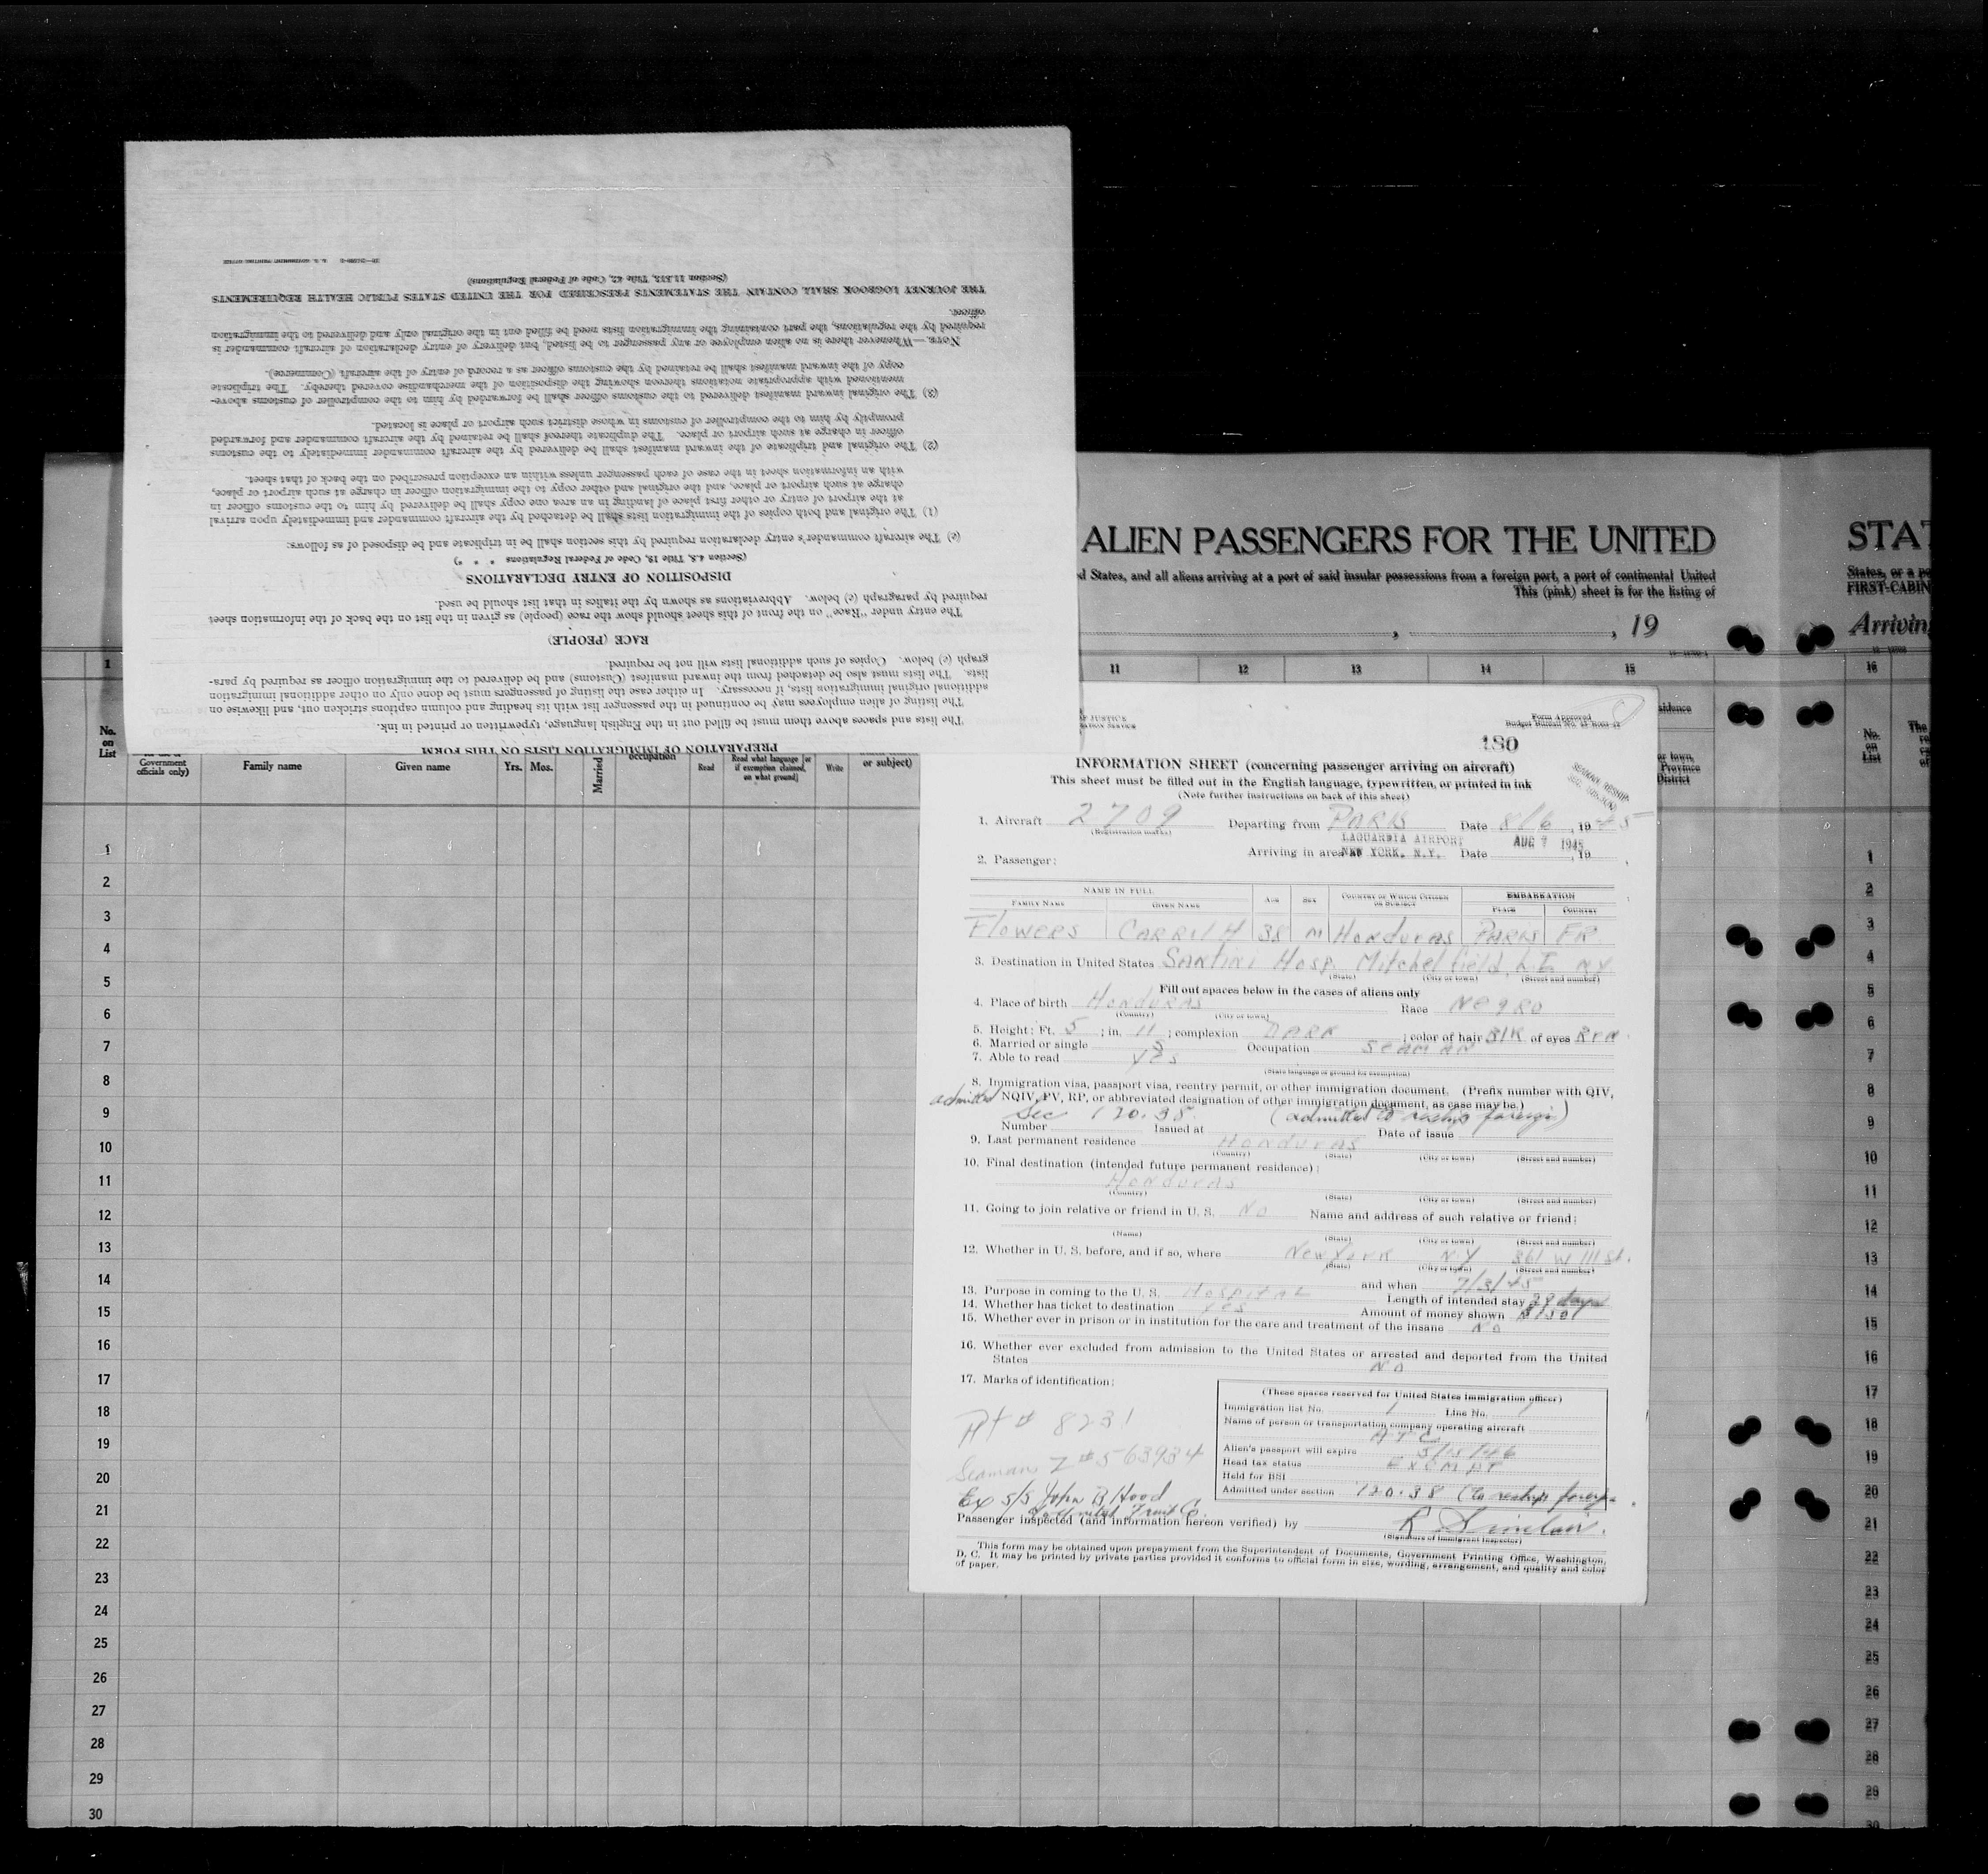 PREPARATION OF IMMIGRATION LISTS ON THIS FORM
The lists and spaces above them must be filled out in the English language, typewritten or printed in ink.
The listing of alien employees may be continued in the passenger list with its heading and column captions stricken out, and likewise on
additional original immigration lists, if necessary. In either case the listing of passengers must be done only on other additional immigration
lists. The lists must also be detached from the inward manifest (Customs) and be delivered to the immigration officer as required by para-
graph (c) below. Copies of such additional lists will not be required.
RACE (PEOPLE)
The entry under "Race" on the front of this sheet should show the race (people) as given in the list on the back of the information sheet
required by paragraph (c) below. Abbreviations as shown by the italics in that list should be used.
DISPOSITION OF ENTRY DECLARATIONS
(Section 4.5, Title 19, Code of Federal Regulations * * *)
(c) The aircraft commander's entry declaration required by this section shall be in triplicate and be disposed of as follows:
(1) The original and both copies of the immigration lists shall be detached by the aircraft commander and immediately upon arrival
at the airport of entry or other first place of landing in an area one copy shall be delivered by him to the customs officer in
charge at such airport or place, and the original and other copy to the immigration officer in charge at such airport or place,
with an information sheet in the case of each passenger unless within an exception prescribed on the back of that sheet.
(2) The original and triplicate of the inward manifest shall be delivered by the aircraft commander immediately to the customs
officer in charge at such airport or place. The duplicate thereof shall be retained by the aircraft commander and forwarded
promptly by him to the comptroller of customs in whose district such airport or place is located.
(3) The original inward manifest delivered to the customs officer shall be forwarded by him to the comptroller of customs above-
mentioned with appropriate notations thereon showing the disposition of the merchandise covered thereby. The triplicate
copy of the inward manifest shall be retained by the customs officer as a record of entry of the aircraft (Commerce).
NOTE.—Whenever there is no alien employee or any passenger to be listed, but delivery of entry declaration of aircraft commander is
required by the regulations, the part containing the immigration lists need be filled out in the original only and delivered to the immigration
officer.
THE JOURNEY LOGBOOK SHALL CONTAIN THE STATEMENTS PRESCRIBED FOR THE UNITED STATES PUBLIC HEALTH REQUIREMENTS
(Section 11.513, Title 42, Code of Federal Regulations)
U. S. GOVERNMENT PRINTING OFFICE
ALIEN PASSENGERS FOR THE UNITED
STAT
d States, and all aliens arriving at a port of said insular possessions from a foreign port, a port of continental United
States, or a po
This (pink) sheet is for the listing of
FIRST-CABIN
, 19
Arriving
1 11 12 13 14 15 16
No. on List
Government officials only)
Family name
Given name
Yrs. Mos.
Married
occupation
Read
Read what language [or if exemption claimed, on what ground]
Write
or subject)
sidence
or town,
Province
District
No. on List
The
1
2
3
4
5
6
7
8
9
10
11
12
13
14
15
16
17
18
19
20
21
22
23
24
25
26
27
28
29
30
OF JUSTICE
Form Approved
180
INFORMATION SHEET (concerning passenger arriving on aircraft)
This sheet must be filled out in the English language, typewritten, or printed in ink
(Note further instructions on back of this sheet)
1. Aircraft 2709 Departing from PARIS Date 8/6, 1945
(Registration marks)
LAGUARDIA AIRPORT AUG 7 1945
Arriving in area at NEW YORK, N.Y. Date , 19
2. Passenger:
NAME IN FULL
FAMILY NAME GIVEN NAME AGE SEX COUNTRY OF WHICH CITIZEN OR SUBJECT EMBARKATION
PLACE COUNTRY
Flowers CARRIL H 38 M Honduras PARIS FR
3. Destination in United States Santini Hosp. Mitchel field, L.I. NY
(State) (City or town) (Street and number)
Fill out spaces below in the cases of aliens only
4. Place of birth Honduras Race Negro
(Country) (City or town)
5. Height: Ft. 5 ; in. 11 ; complexion DARK ; color of hair Blk of eyes Brn
6. Married or single S Occupation Seaman
7. Able to read yes
(State language or ground for exemption)
8. Immigration visa, passport visa, reentry permit, or other immigration document. (Prefix number with QIV,
admitted NQIV, PV, RP, or abbreviated designation of other immigration document, as case may be.)
Sec 120.38 (admitted to reship foreign)
Number Issued at Date of issue
9. Last permanent residence Honduras
(Country) (State) (City or town) (Street and number)
10. Final destination (intended future permanent residence):
Honduras
(Country) (State) (City or town) (Street and number)
11. Going to join relative or friend in U. S. No Name and address of such relative or friend:
(Name) (State) (City or town) (Street and number)
12. Whether in U. S. before, and if so, where New York N.Y 361 W 111 St.
(State) (City or town) (Street and number)
and when 7/3/45
13. Purpose in coming to the U. S. Hospital Length of intended stay 29 days
14. Whether has ticket to destination yes Amount of money shown $150
15. Whether ever in prison or in institution for the care and treatment of the insane No
16. Whether ever excluded from admission to the United States or arrested and deported from the United
States No
17. Marks of identification:
(These spaces reserved for United States immigration officer)
Immigration list No. 1 Line No. 1
Name of person or transportation company operating aircraft
ATC
Alien's passport will expire
Head tax status EXEMPT
Held for BSI
Admitted under section 120.38 (to reship foreign
# 8231
Seamans Z #563934
Ex S/S John B Hood
United Fruit Co.
Passenger inspected (and information hereon verified) by R Sinclair.
(Signature of immigrant inspector)
This form may be obtained upon prepayment from the Superintendent of Documents, Government Printing Office, Washington,
D. C. It may be printed by private parties provided it conforms to official form in size, wording, arrangement, and quality and color
of paper.